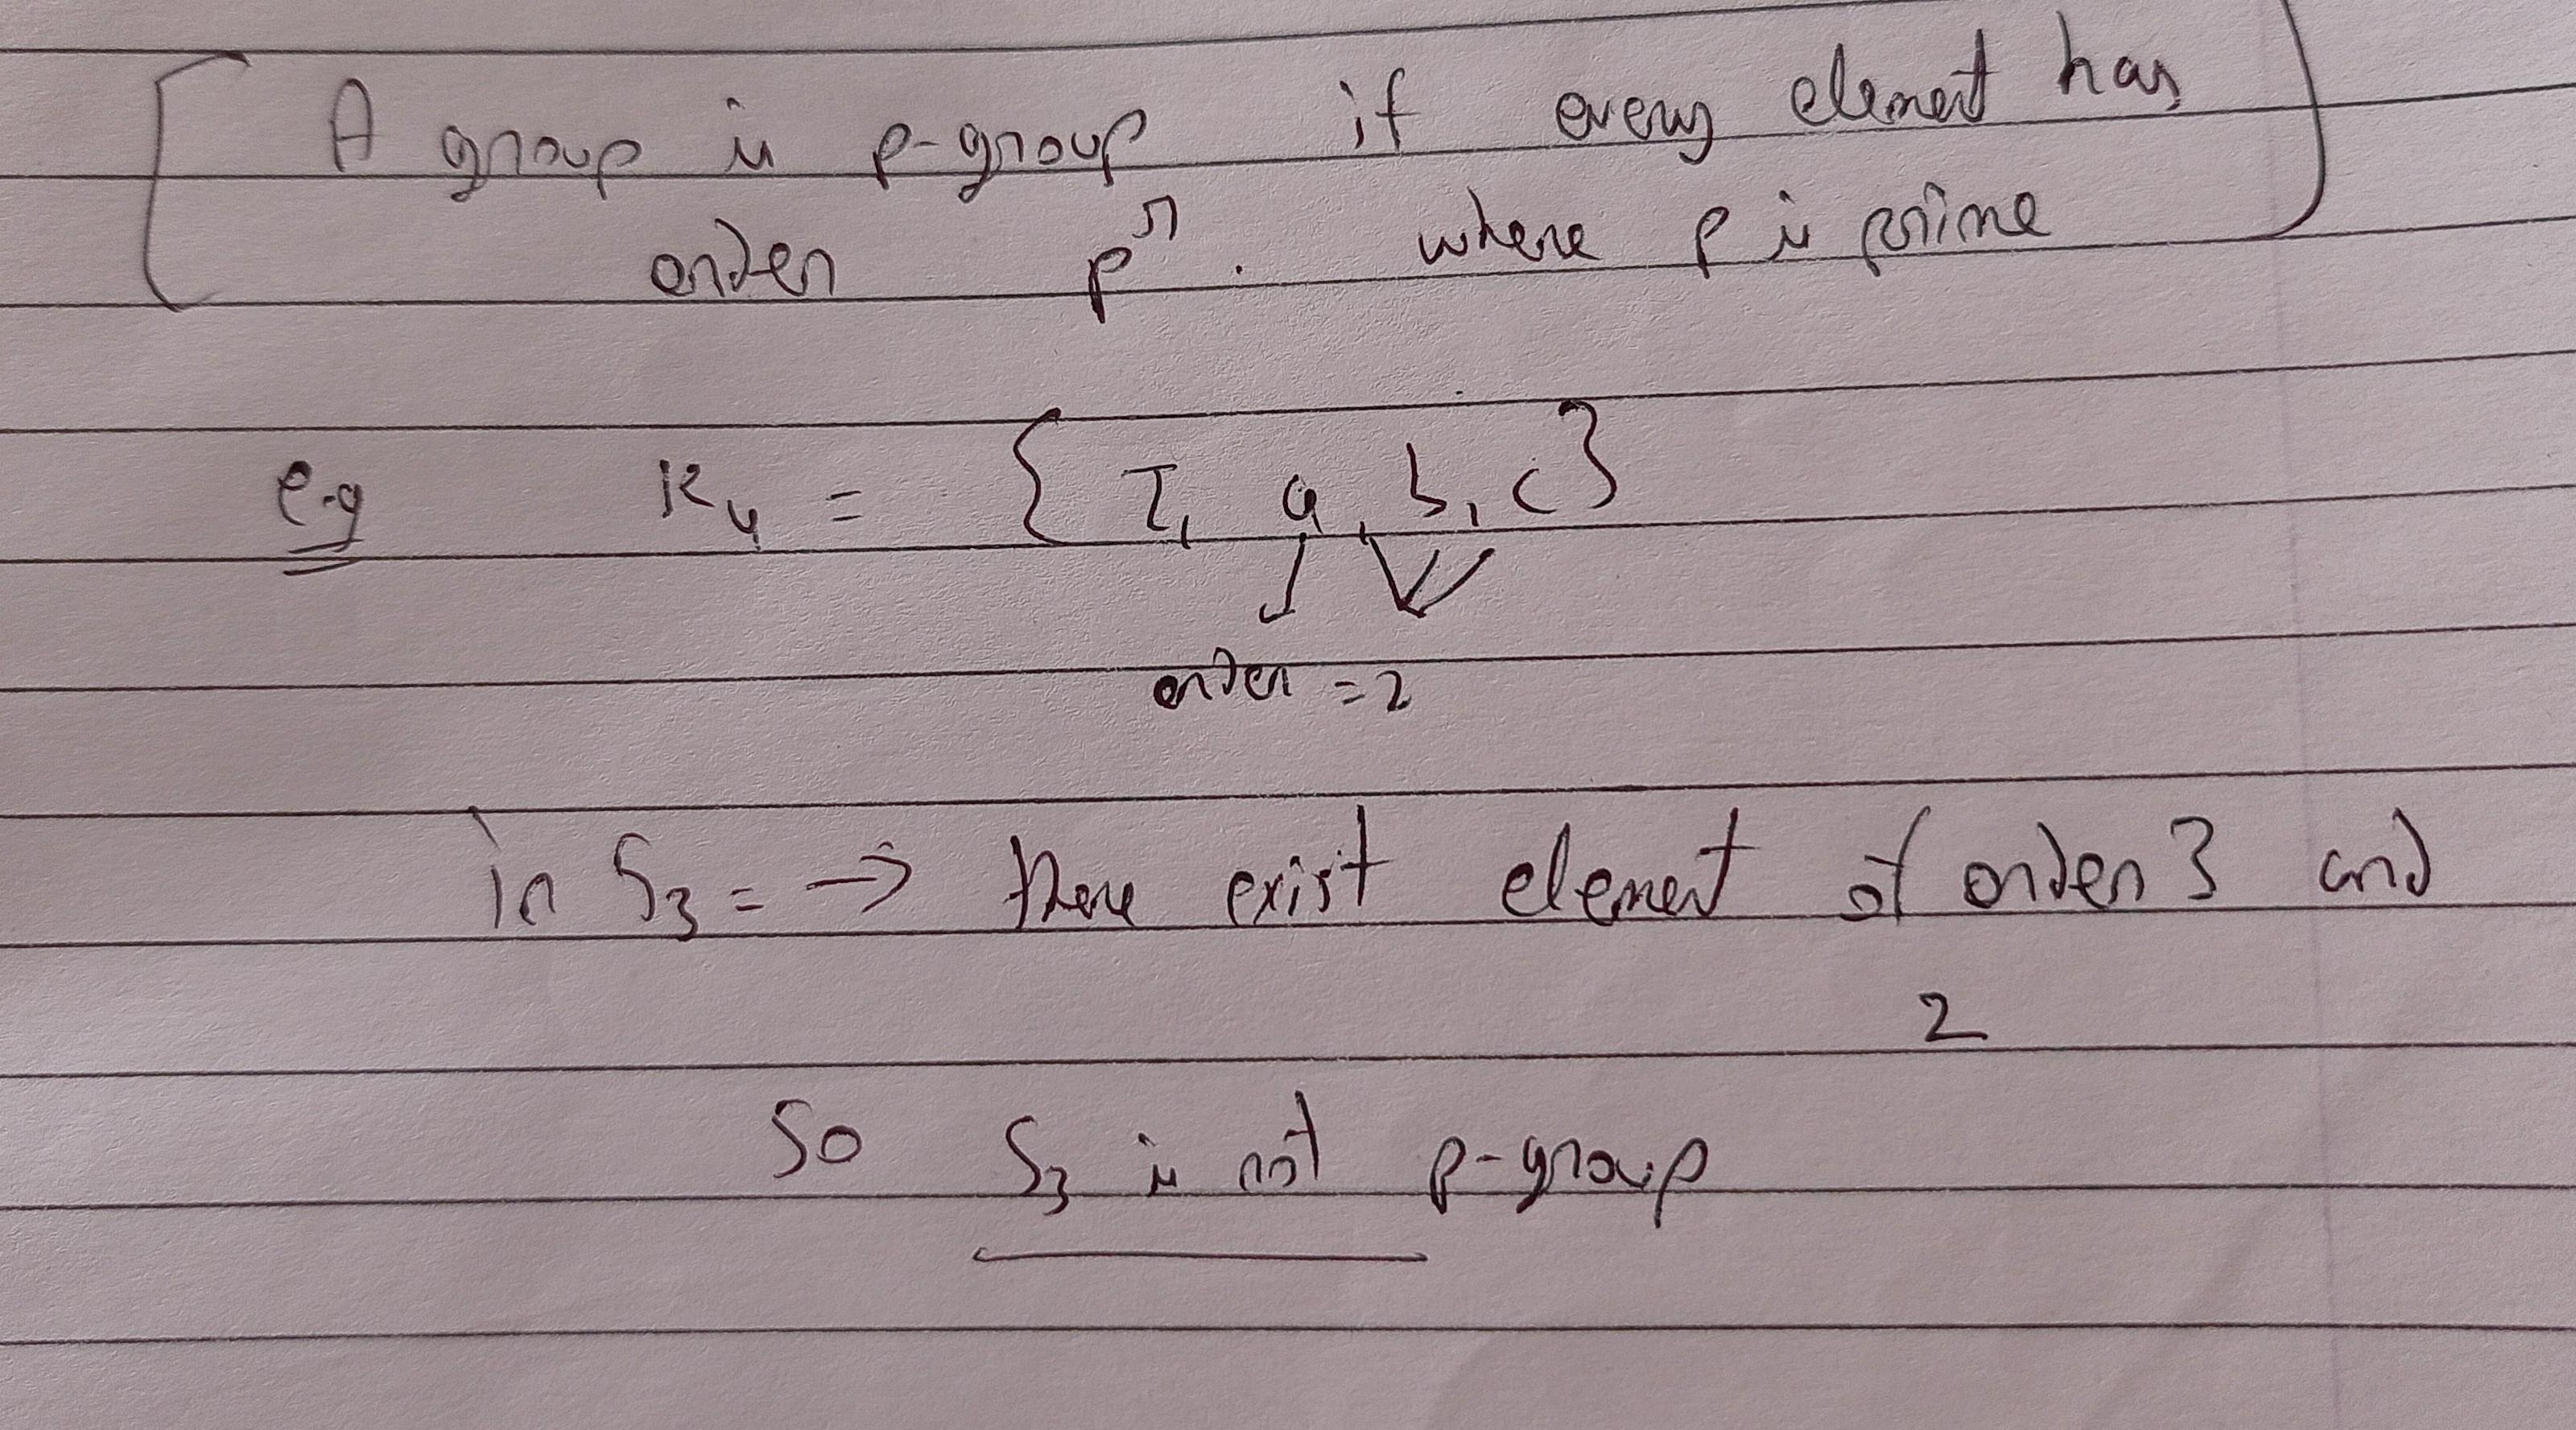 A group is p-group if every element has
order pⁿ. where p is prime
e.g K₄ = { I, a, b, c }
order = 2
in S₃ = → there exist element of order 3 and
2
So S₃ is not p-group